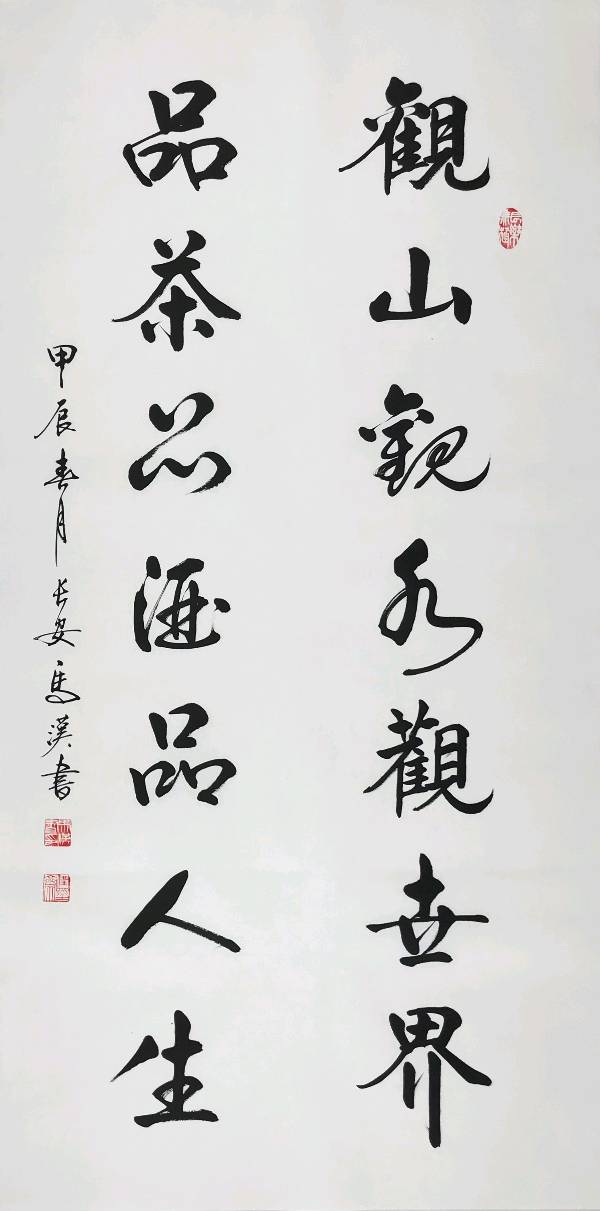 觀山觀水觀世界
品茶品酒品人生
甲辰春月长安馬漢書